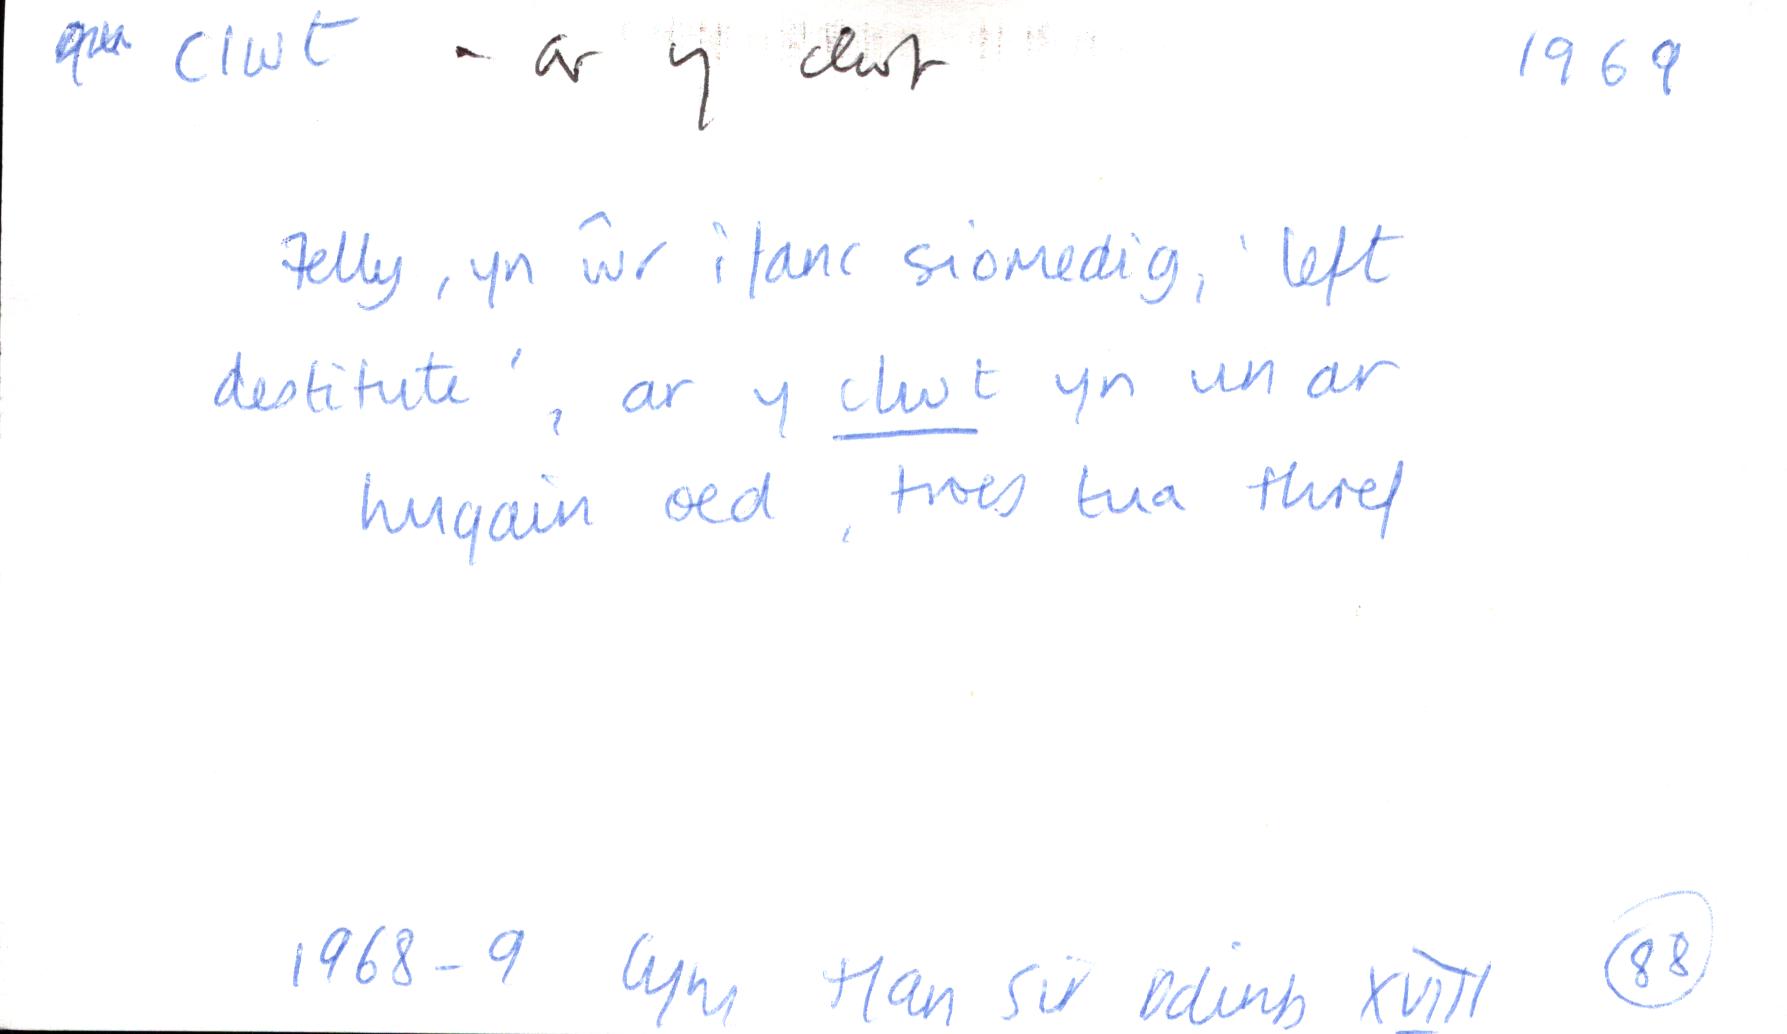 clwt - ar y clwt 1969
Felly, yn ŵr ifanc siomedig, 'left
destitute', ar y clwt yn un ar
hugain oed, troes tua thref
1968-9 Cym Han Sir Ddinb XVIII 88